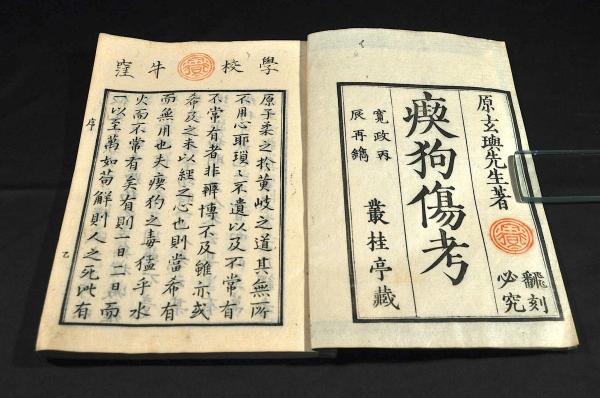 原玄璵先生著
飜刻
必究
瘈狗傷考
叢桂亭藏
寛政丙
辰再鐫
學校牛窪
原子柔之於黄岐之道其無所
不用心耶瑣〻不遺以及不常有
不常有者非辨博不及雖亦或
希及之未以經之心也則當希有
而無用也夫瘈狗之毒猛乎水
火而不常有矣有則一日二日而
一以至萬如苟觧則人之死此有
序
乙